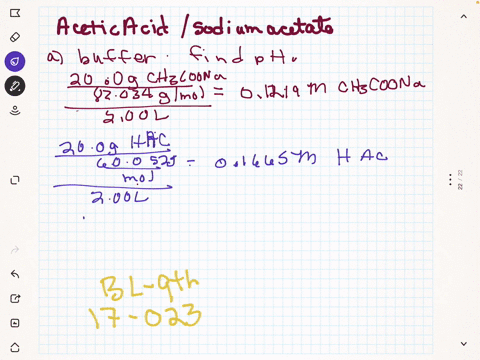 Acetic Acid / sodium acetate
a) buffer. find pH.
20.0g CH3COONa
82.034 g/mol = 0.1219 M CH3COONa
2.00L
20.0g HAC
60.052g = 0.1665M HAC
mol
2.00L
BL-9th
17-023
22 / 22